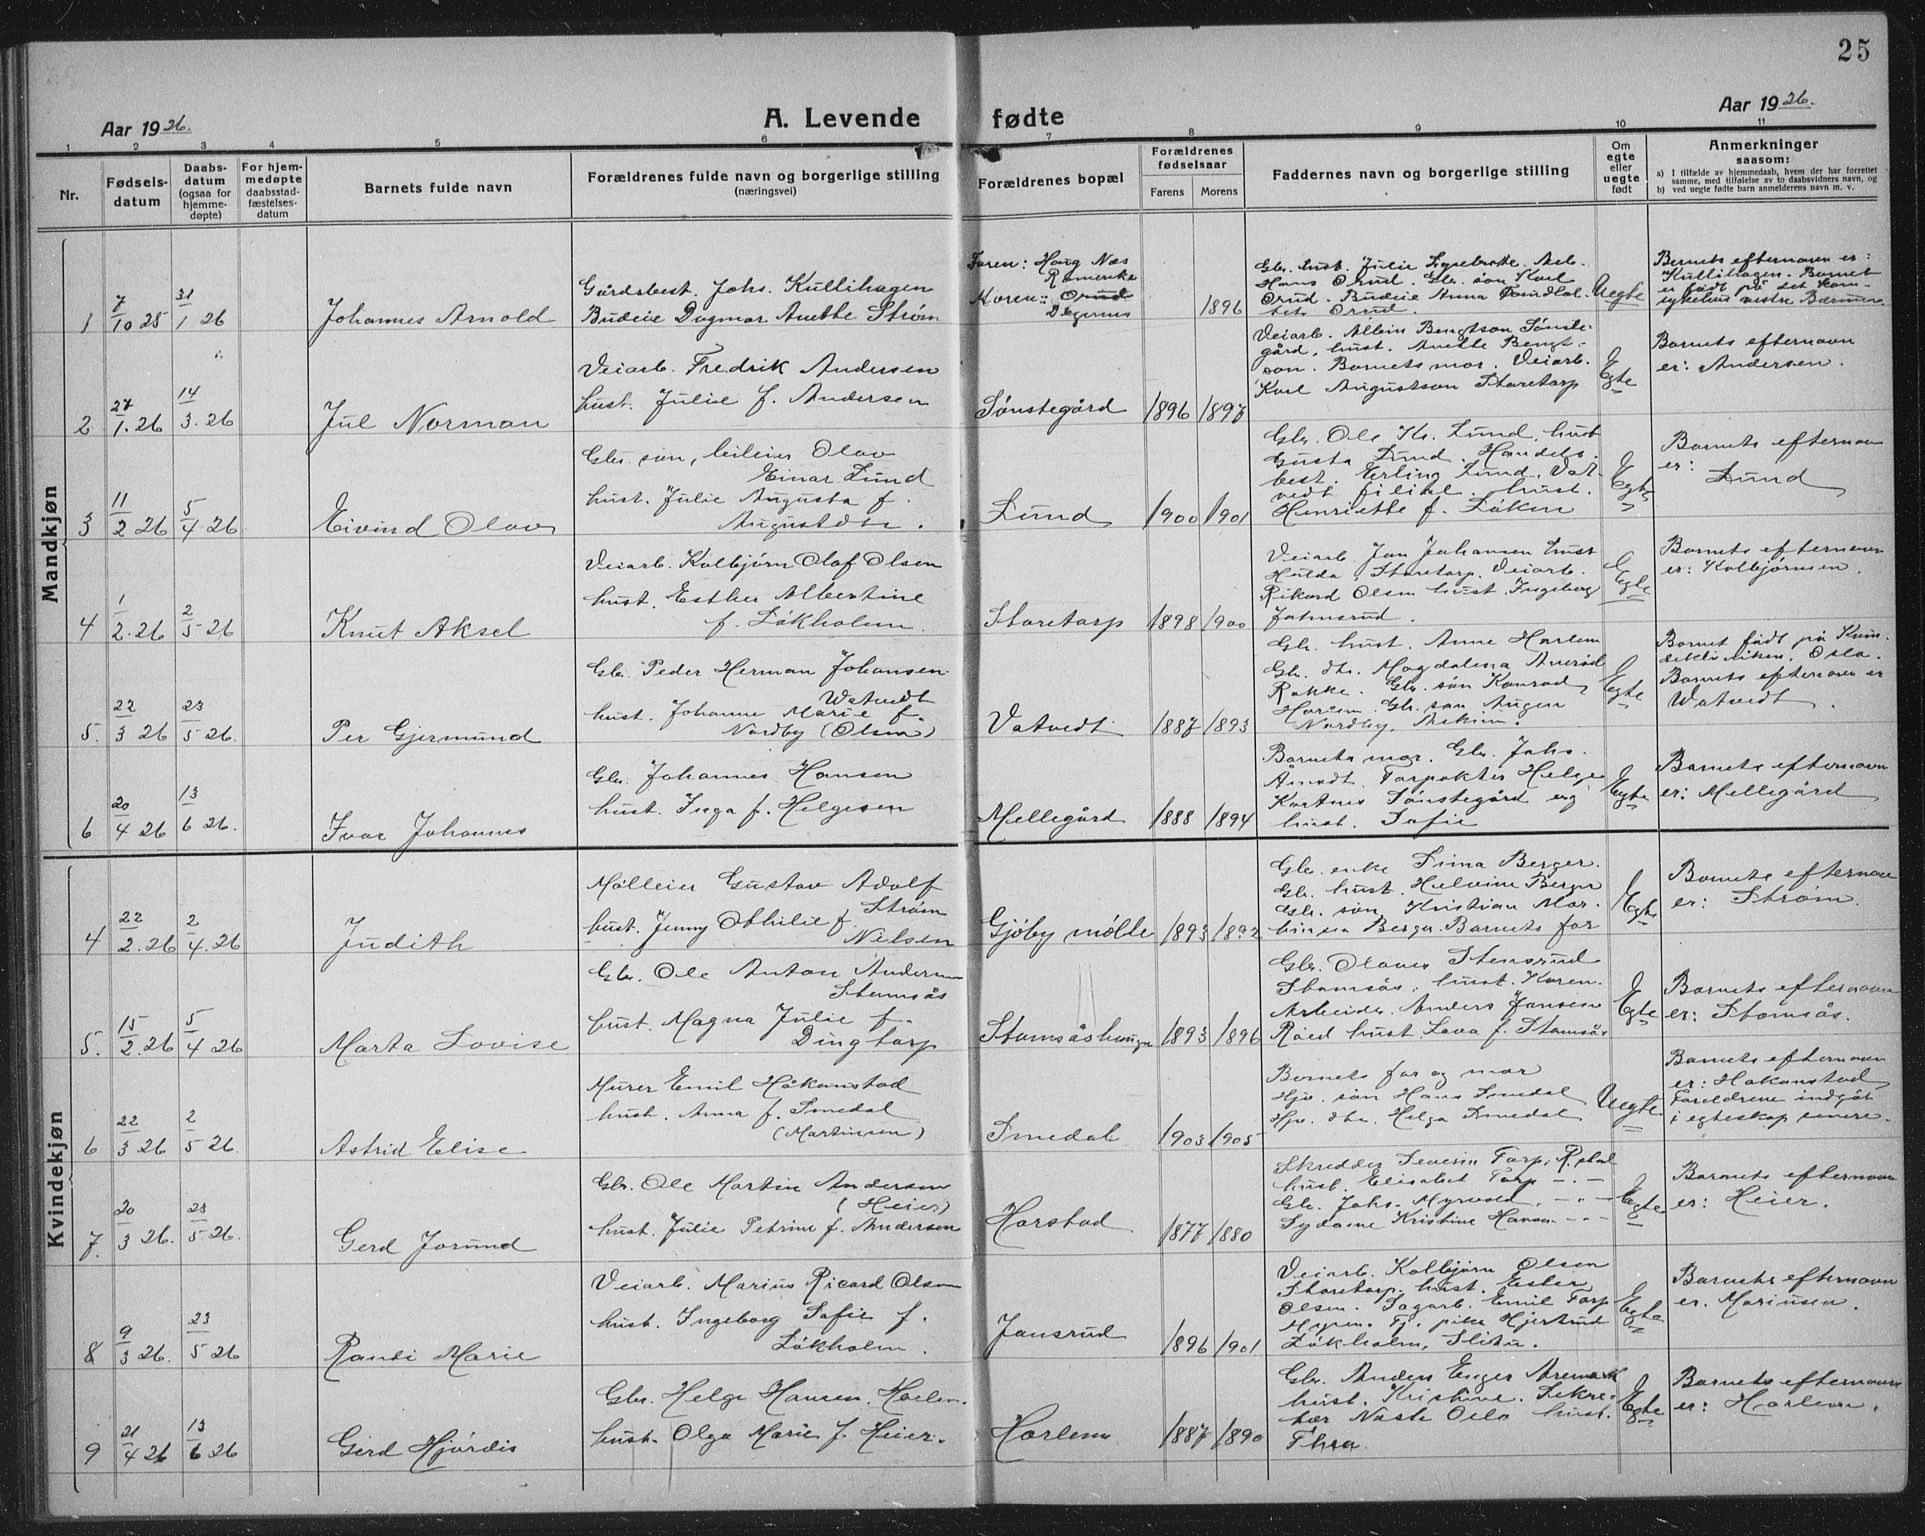 25
Aar 1926.
A. Levende fødte
Aar 1926.
1 2 3 4 5 6 7 8 9 10 11
Nr.
Fødsels-
datum
Daabs-
datum
(ogsaa for
hjemme-
døpte)
For hjem-
medøpte
daabsstad-
fæstelses-
datum
Barnets fulde navn
Forældrenes fulde navn og borgerlige stilling
(næringsvei)
Forældrenes bopæl
Forældrenes
fødselsaar
Farens Morens
Faddernes navn og borgerlige stilling
Om
egte
eller
uegte
født
Anmerkninger
saasom:
a) I tilfælde av hjemmedaab, hvem der har forrettet
samme, med tilføielse av to daabsvidners navn, og
b) ved uegte fødte barn anmelderens navn m. v.
Mandkjøn
1 7/10 25 31/1 26 Johannes Arnold
Gårdsbest. Johs. Kullihagen
Budeie Dagmar Anette Strøm
Faren: Haug Nes
Romerike
Moren: Orud
Degernes
1896
Gbr. hust. Julie Lysebratte.
Hans Orud. Gbr. søn Karl
Orud. Budeie Anna
Orud.
Uegte
Barnets efternavn er:
Kullihagen. Barnet
er født på det
sykehus vestre Bærum
2 27/1.26 14/3.26 Jul Norman
Veiarb. Fredrik Andersen
hust. Julie f. Andersen
Sønstegård 1896 1897
Veiarb. Albin Bengtson Sønste-
gård, hust. Anette Bengt-
son. Barnets mor. Veiarb.
Karl Augustson Storetorp
Egte
Barnets efternavn
er: Andersen.
3 11/2 26 5/4 26 Eivind Olav
Gbr. søn, leileier Olav
Einar Lund
hust. Julie Augusta f.
Augustdtr.
Lund 1900 1901
Gbr. Ole Kr. Lund, hust
Gusta Lund. Handels-
best. Erling Lund, Vat-
vedt filial. hust.
Henriette f. Løken
Egte
Barnets efternavn
er:
Lund
4 1/2.26 2/5 26 Knut Aksel
Veiarb. Kolbjørn Olaf Olsen
hust. Esther Albertine
f. Løkholm.
Storetorp 1898 1900
Veiarb. Jan Johansen hust
Hulda, Storetorp. Veiarb.
Rikard Olsen hust. Ingeborg
Jahnsrud.
Egte
Barnets efternavn
er: Kolbjørnsen.
5. 22/3 26 23/5 26. Per Gjermund
Gbr. Peder Herman Johansen
Watvedt
hust. Johanne Marie f.
Nordby (Olsen)
Vatvedt 1887 1893
Gbr. hust. Anne Harlem
Gbr. dtr. Magdalena Auerød
Rakke. Gbr. søn Konrad
Harlem. Gbr. søn Augen
Nordby, Askim.
Egte
Barnet født på Kvin-
deklinikken, Oslo.
Barnets efternavn er
Watvedt.
6 20/4 26 13/6 26. Ivar Johannes
Gbr. Johannes Hansen
hust. Inga f. Helgesen
Mellegård 1888 1894
Barnets mor. Gbr. Johs.
Åmodt. Forpakter Helge
Kortnes Sønstegård og
hust. Sofie
Egte
Barnets efternavn
er: Mellegård
Kvindekjøn
4 22/2.26 2/4.26 Judith
Mølleier Gustav Adolf
Strøm
hust. Jenny Othilie f.
Nilsen
Gjøby mølle 1893 1892
Gbr. enke Dina Berger.
Gbr. hust. Hulvine Berger
Gbr. søn Kristian Mar-
tinsen Berger. Barnets far
Egte
Barnets efternavn
er: Strøm.
5. 15/2.26 5/4 26 Marta Lovise
Gbr. Ole Anton Andersen
Stomsås
hust. Magna Julie f.
Dingtorp
Stomsåshaugen 1893 1896
Gbr. Olaves Stensrud
Stomsås, hust. Karen.
Arbeider Anders Jansen
Røed hust. Lava f. Stomsås.
Egte
Barnets efternavn
er: Stomsås.
6 22/3 26 2/5 26. Astrid Elise
Murer Emil Håkonstad
hust. Anna f. Smedal
(Martinsen)
Smedal 1903 1905
Barnets far og mor
Hjv. søn Hans Smedal
Hjv. dtr. Helga Smedal
Uegte
Barnets efternavn
er: Hakonstad
Foreldrene indgåt
i egteskap senere.
7. 20/3 26. 23/5 26. Gerd Jorund
Gbr. Ole Martin Andersen
(Heier)
hust. Julie Petrine f. Andersen
Harstad 1877 1880
Skredder Severin Torp,
hust. Elisabet Torp - . -
Gbr. Johs. Myrvold. - . -
Sydame Kristine Hansen - . -
Egte
Barnets efternavn
er: Heier.
8 9/3 26. 23/5 26 Randi Marie
Veiarb. Marius Ricard Olsen
hust. Ingeborg Sofie f.
Løkholm.
Jansrud 1896 1901
Veiarb. Kolbjørn Olsen
Storetorp. hust. Ester
Olsen. Sagarb. Emil Torp
Myren. Tj. pike Hjertrud
Løkholm, Slitu.
Egte
Barnets efternavn
er. Mariusen.
9 21/4 26 13/6 26 Gerd Hjørdis
Gbr. Helge Hansen Harlem.
hust. Olga Marie f. Heier.
Harlem 1887 1890
Gbr. Anders Enger Aremark
hust. Kristine. Sekre-
tær Oslo hust.
Thea.
Egte
Barnets efternavn
er: Harlem.